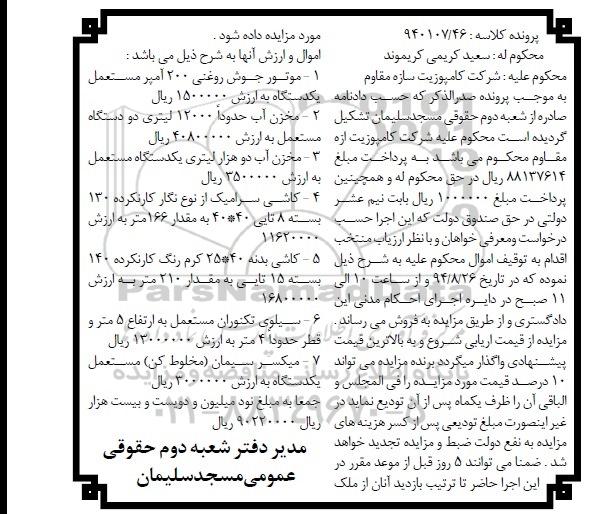 پرونده کلاسه : ۹۴۰۱۰۷/۴۶
محکوم له : سعید کریمی کریموند
محکوم علیه : شرکت کامپوزیت سازه مقاوم
به موجـب پرونده صدرالذکر که حسـب دادنامه
صادره از شعبه دوم حقوقی مسجدسلیمان تشکیل
گردیده اسـت محکوم علیه شرکت کامپوزیت ازه
مقـاوم محکـوم می باشـد بـه پرداخـت مبلغ
۸۸۱۳۷۶۱۴ ریال در حق محکوم له و همچینین
پرداخـت مبلغ ۱۰۰۰۰۰۰ ریال بابت نیم عشـر
دولتی در حق صندوق دولت که این اجرا حسـب
درخواست ومعرفی خواهان و با نظر ارزیاب منتخب
اقدام به توقیف اموال محکوم علیه به شـرح ذیل
نموده که در تاریخ ۹۴/۸/۲۶ و از سـاعت ۱۰ الی
۱۱ صبـح در دایـره اجـرای احکـام مدنی این
دادگستری و از طریق مزایده به فروش می رساند .
مزایده از قیمت اریابی شـروع و به بالاترین قیمت
پیشـنهادی واگذار میگردد برنده مزایده می تواند
۱۰ درصـد قیمت مورد مزایـده را فی المجلس و
الباقی آن را ظرف یکماه پس از آن تودیع نماید در
غیر اینصورت مبلغ تودیعی پس از کسر هزینه های
مزایده به نفع دولت ضبط و مزایده تجدید خواهد
شد . ضمنا می توانند ۵ روز قبل از موعد مقرر در
این اجرا حاضر تا ترتیب بازدید آنان از ملک
مورد مزایده داده شود .
اموال و ارزش آنها به شرح ذیل می باشد :
۱ - موتـور جـوش روغنی ۲۰۰ آمپر مسـتعمل
یکدستگاه به ارزش ۱۵۰۰۰۰۰ ریال
۲ - مخزن آب حدوداً ۱۲۰۰۰ لیتری دو دستگاه
مستعمل به ارزش ۴۰۸۰۰۰۰۰ ریال
۳ - مخزن آب دو هزار لیتری یکدستگاه مستعمل
به ارزش ۳۵۰۰۰۰۰ ریال
۴ - کاشـی سـرامیک از نوع نگار کارنکرده ۱۳۰
بسته ۸ تایی ۴۰*۴۰ به مقدار ۱۶۶متر به ارزش
۱۱۶۲۰۰۰۰
۵ - کاشی بدنه ۴۰*۲۵ کرم رنگ کارنکرده ۱۴۰
بسـته ۱۵ تایـی به مقـدار ۲۱۰ متر بـه ارزش
۱۶۸۰۰۰۰۰
۶ - سـیلوی تکنوران مستعمل به ارتفاع ۵ متر و
قطر حدودا ۴ متر به ارزش ۱۳۰۰۰۰۰۰ ریال
۷ - میکسـر سـیمان (مخلوط کن) مسـتعمل
یکدستگاه به ارزش ۳۰۰۰۰۰۰ ریال
جمعا به مبلغ نود میلیون و دویست و بیست هزار
ریال ۹۰۲۲۰۰۰۰ ریال
مدیر دفتر شعبه دوم حقوقی
عمومی‌مسجدسلیمان
ParsNamadData
پایگاه اطلاع رسانی مناقصه و مزایده
۰۲۱-۸۸۳۴۹۶۷۰-۵